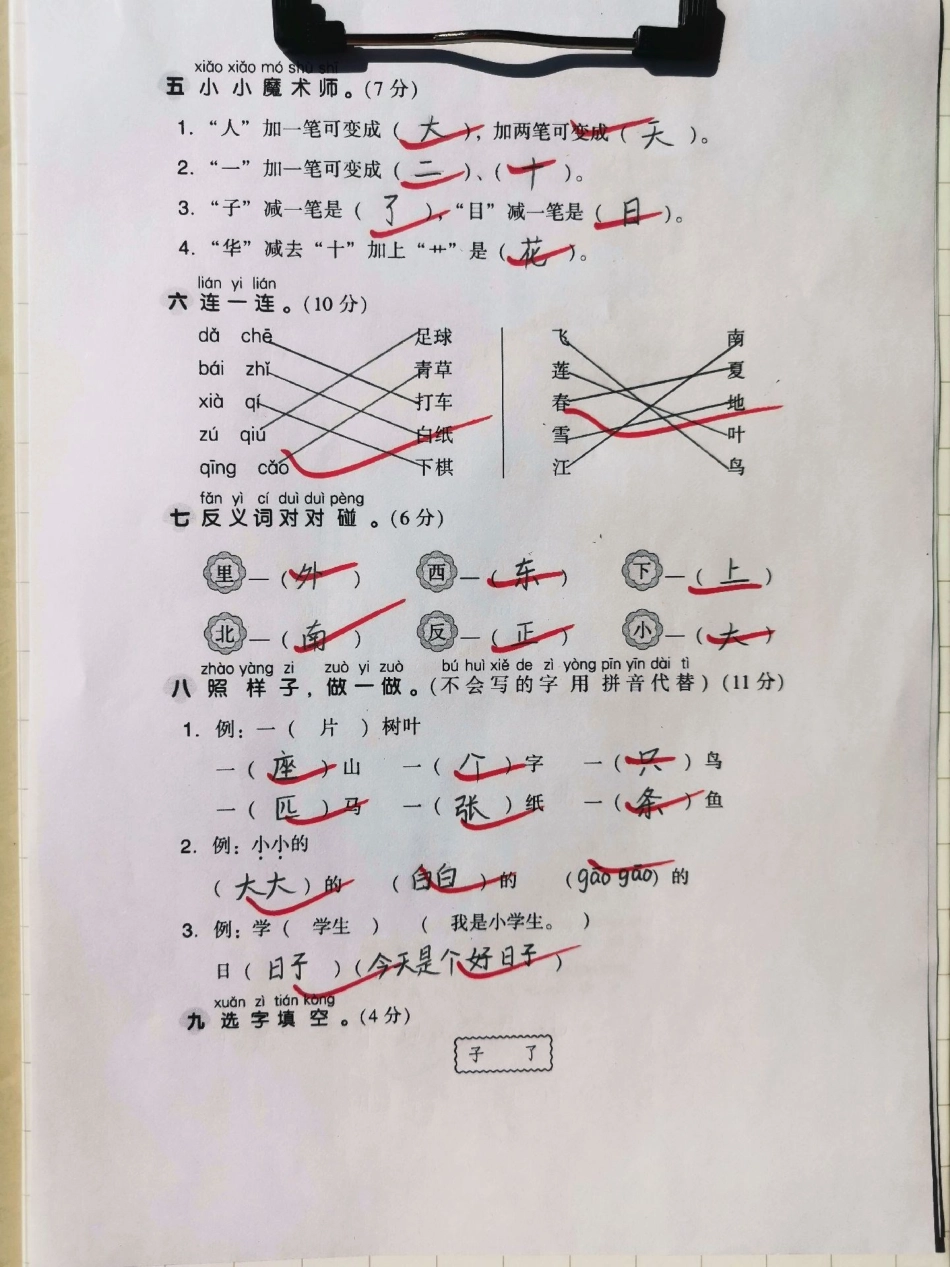 xiǎo xiǎo mó shù shī
五 小小魔术师。(7分)
1. “人”加一笔可变成( 大 ),加两笔可变成( 天 )。
2. “一”加一笔可变成( 二 )、( 十 )。
3. “子”减一笔是( 了 ),“目”减一笔是( 日 )。
4. “华”减去“十”加上“艹”是( 花 )。
lián yi lián
六 连一连。(10分)
dǎ chē 足球 飞 南
bái zhǐ 青草 莲 夏
xià qí 打车 春 地
zú qiú 白纸 雪 叶
qīng cǎo 下棋 江 鸟
fǎn yì cí duì duì pèng
七 反义词对对碰。(6分)
里—( 外 ) 西—( 东 ) 下—( 上 )
北—( 南 ) 反—( 正 ) 小—( 大 )
zhào yàng zi zuò yi zuò bú huì xiě de zì yòng pīn yīn dài tì
八 照样子,做一做。(不会写的字用拼音代替)(11分)
1. 例:一( 片 )树叶
一( 座 )山 一( 个 )字 一( 只 )鸟
一( 匹 )马 一( 张 )纸 一( 条 )鱼
2. 例:小小的
( 大大 )的 ( 白白 )的 (gāo gāo)的
3. 例:学( 学生 ) ( 我是小学生。 )
日( 日子 )(今天是个好日子 )
xuǎn zì tián kòng
九 选字填空。(4分)
子 了